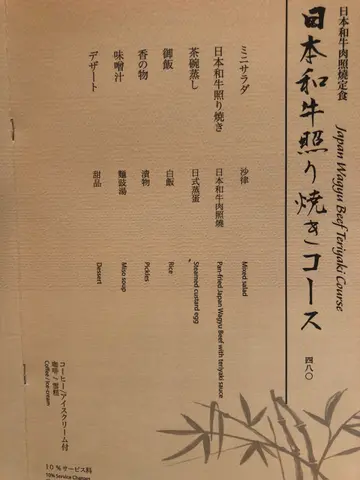 日本和牛肉照燒定食
日本和牛照り焼きコース 四八〇
Japan Wagyu Beef Teriyaki Course
ミニサラダ 沙律 Mixed salad
日本和牛照り焼き 日本和牛肉照燒 Pan-fried Japan Wagyu Beef with teriyaki sauce
茶碗蒸し 日式蒸蛋 Steamed custard egg
御飯 白飯 Rice
香の物 漬物 Pickles
味噌汁 麵豉湯 Miso soup
デザート 甜品 Dessert
コーヒー/アイスクリーム付
咖啡/雪糕
Coffee / Ice-cream
10%サービス料
10% Service Charges